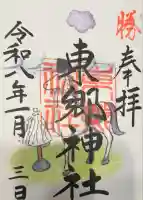 勝
奉拝
東郷神社
令和八年一月三日